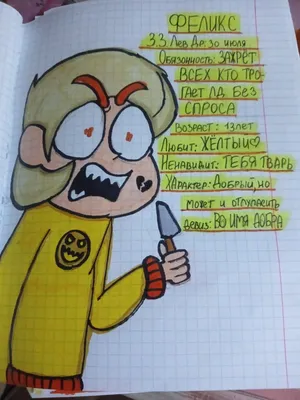 ФЕЛИКС
З.З. Лев Др: 30 июля
Обязонность: ЗАЖРЁТ
ВСЕХ КТО ТРО-
ГАЕТ ЛД БЕЗ
СПРОСА
Возраст: 13 лет
Любит: ЖЁЛТЫЙ
Ненавидит: ТЕБЯ ТВАРЬ
Характер: Добрый, но
может и отлупасить
девиз: ВО ИМЯ ДОБРА